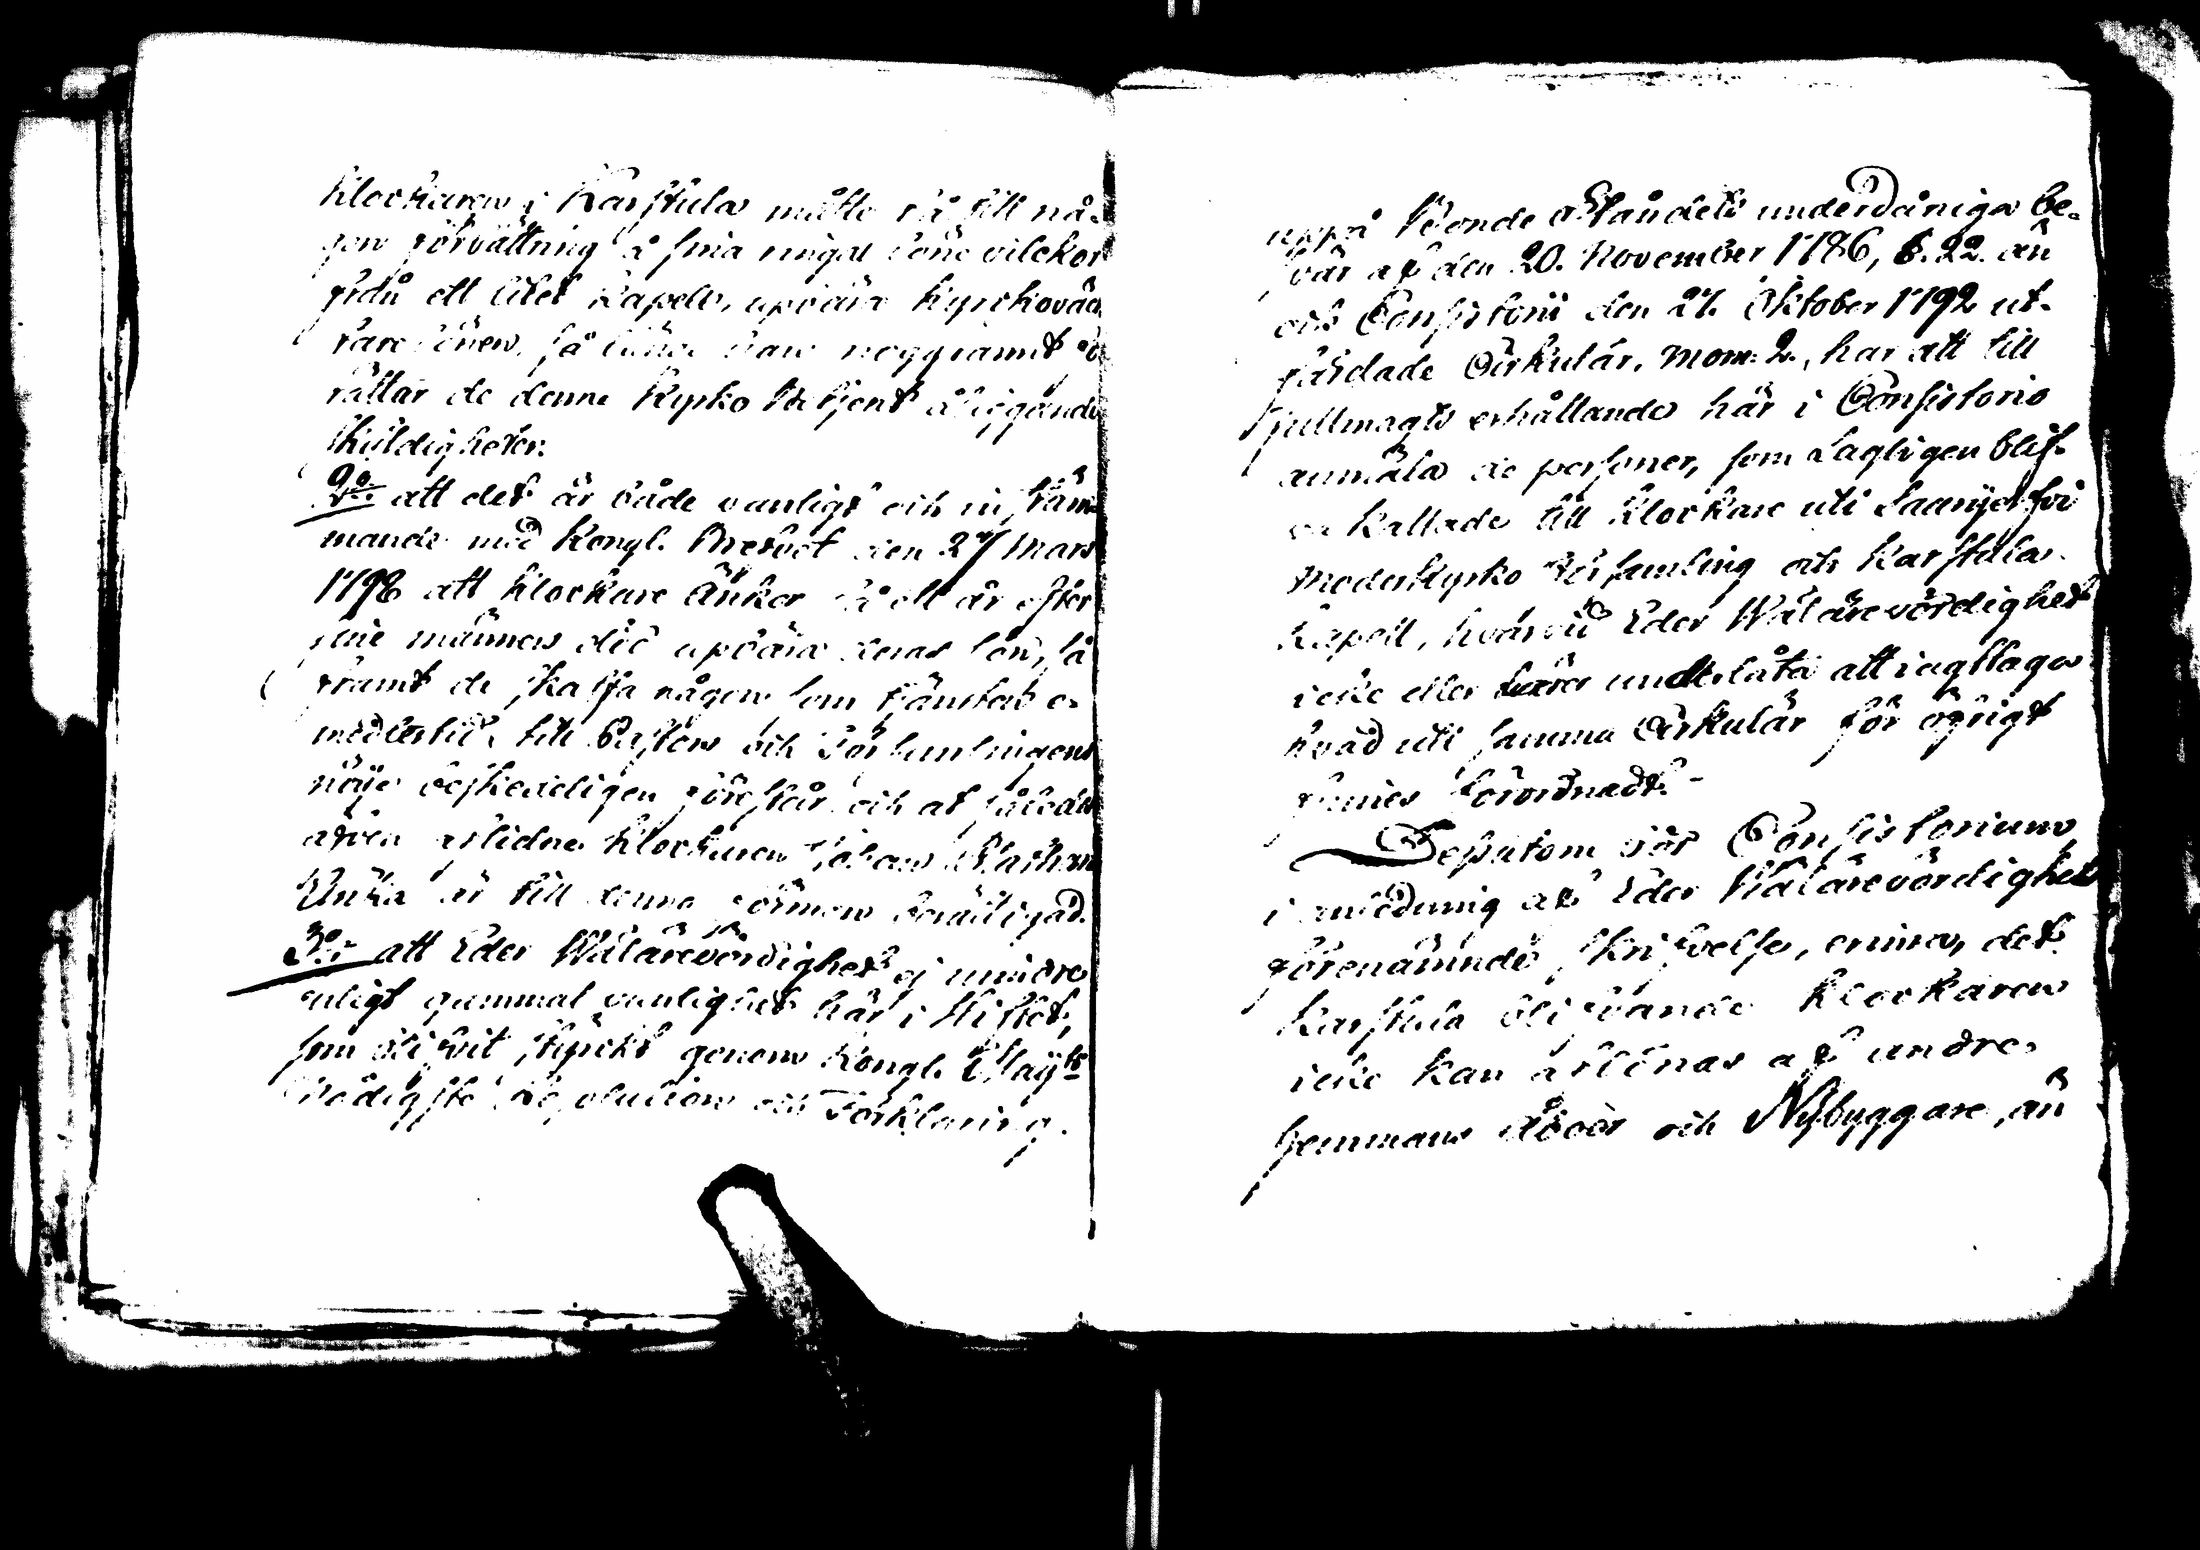 Klockaren i Karstula måtte få till nå-
gon förbättring å sina ringa löne vilckor
från ett litet Kapell, upbära Kyrckoväck-
tare lönen, så länge han noggrannt för-
rättar de denne Kyrko Betjent åliggande
skyldigheter.
2o att det är både vanligt och instäm-
mande med Kongl. Brefvet den 27 Mars
1798 att Klockare Änkor få ett år efter
sine männers död upbära deras lön, så
framt de skaffa någon som tjänsten e-
medlertid, till Pastors och Församlingens
nöije beskedeligen förestår och at således
äfven aflidne Klockaren Johan
Enka är till denne förmon berättigad.
3o att Eder Wälärevördighet ej mindre
enligt gammal vanlighet här i Stiftet,
som blifvit styrckt genom Kongl. Maijts
Nådigste Resolution och Förklaring
uppå Bonde Ståndets underdåniga be-
svär af den 20. November 1786, §. 22. än
ock Consistorii den 24. Oktober 1792 ut-
färdade Cirkulär. Mom. 2., har att till
fullmagts erhållande här i Consistorio
anmäla de personer, som Lagligen blif-
va kallade till Klockare uti Saarijerfvi
Moderkyrko Församling och Karstula
Kapell, hvarvid Eder Wälärevördighet
icke eller lärer underlåta att iagttaga
hvad uti samma Cirkulär för öfrigt
finnes förordnadt.-
Dessutom får Consistorium,
i anledning af Eder Wälärevördighets
förenämnde skrifvelse, erinra, det
Karstula blifvande Klockaren
icke kan aflönas af andre
Hemmans Åboer och Nybyggare, än